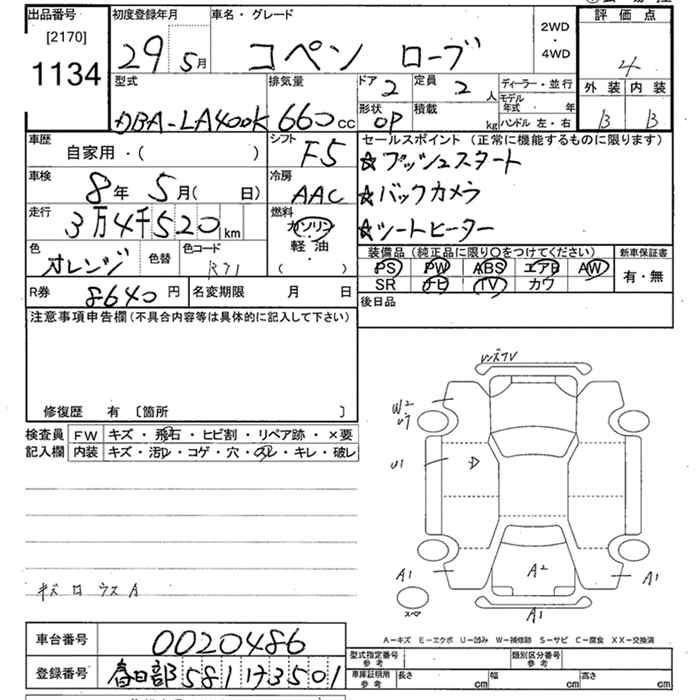 出品番号
[2170]
1134
初度登録年月
29 5月
車名・グレード
コペン ローブ
2WD
・
4WD
評価点
4
外装 内装
B B
型式
DBA-LA400K
排気量
660cc
ドア 2
定員 2人
ディーラー・並行
モデル年式 年
ハンドル 左・右
形状 OP
積載 kg
車歴
自家用・( )
シフト
F5
セールスポイント (正常に機能するものに限ります)
☆プッシュスタート
☆バックカメラ
☆シートヒーター
車検
8年 5月( 日)
冷房
AAC
走行
3万4千520km
燃料
ガソリン
軽・油
( )
色
オレンジ
色替
色コード
R71
装備品 (純正品に限り〇をつけてください)
PS PW ABS エアB AW
SR ナビ TV カワ
新車保証書
有・無
R券 8640円
名変期限 月 日
後日品
注意事項申告欄(不具合内容等は具体的に記入して下さい)
修復歴 有 〔箇所 〕
検査員記入欄
FW キズ・飛石・ヒビ割・リペア跡・×要
内装 キズ・汚レ・コゲ・穴・スレ・キレ・破レ
キズ ロ ウス A
W2
U1
A1
A2
A1
A1
スペア
A-キズ E-エクボ U-凹み W-補修跡 S-サビ C-腐食 XX-交換済
車台番号
0020486
登録番号
春日部581 け3501
型式指定番号
参考
類別区分番号
参考
車庫証明用
参考
長さ cm
幅 cm
高さ cm